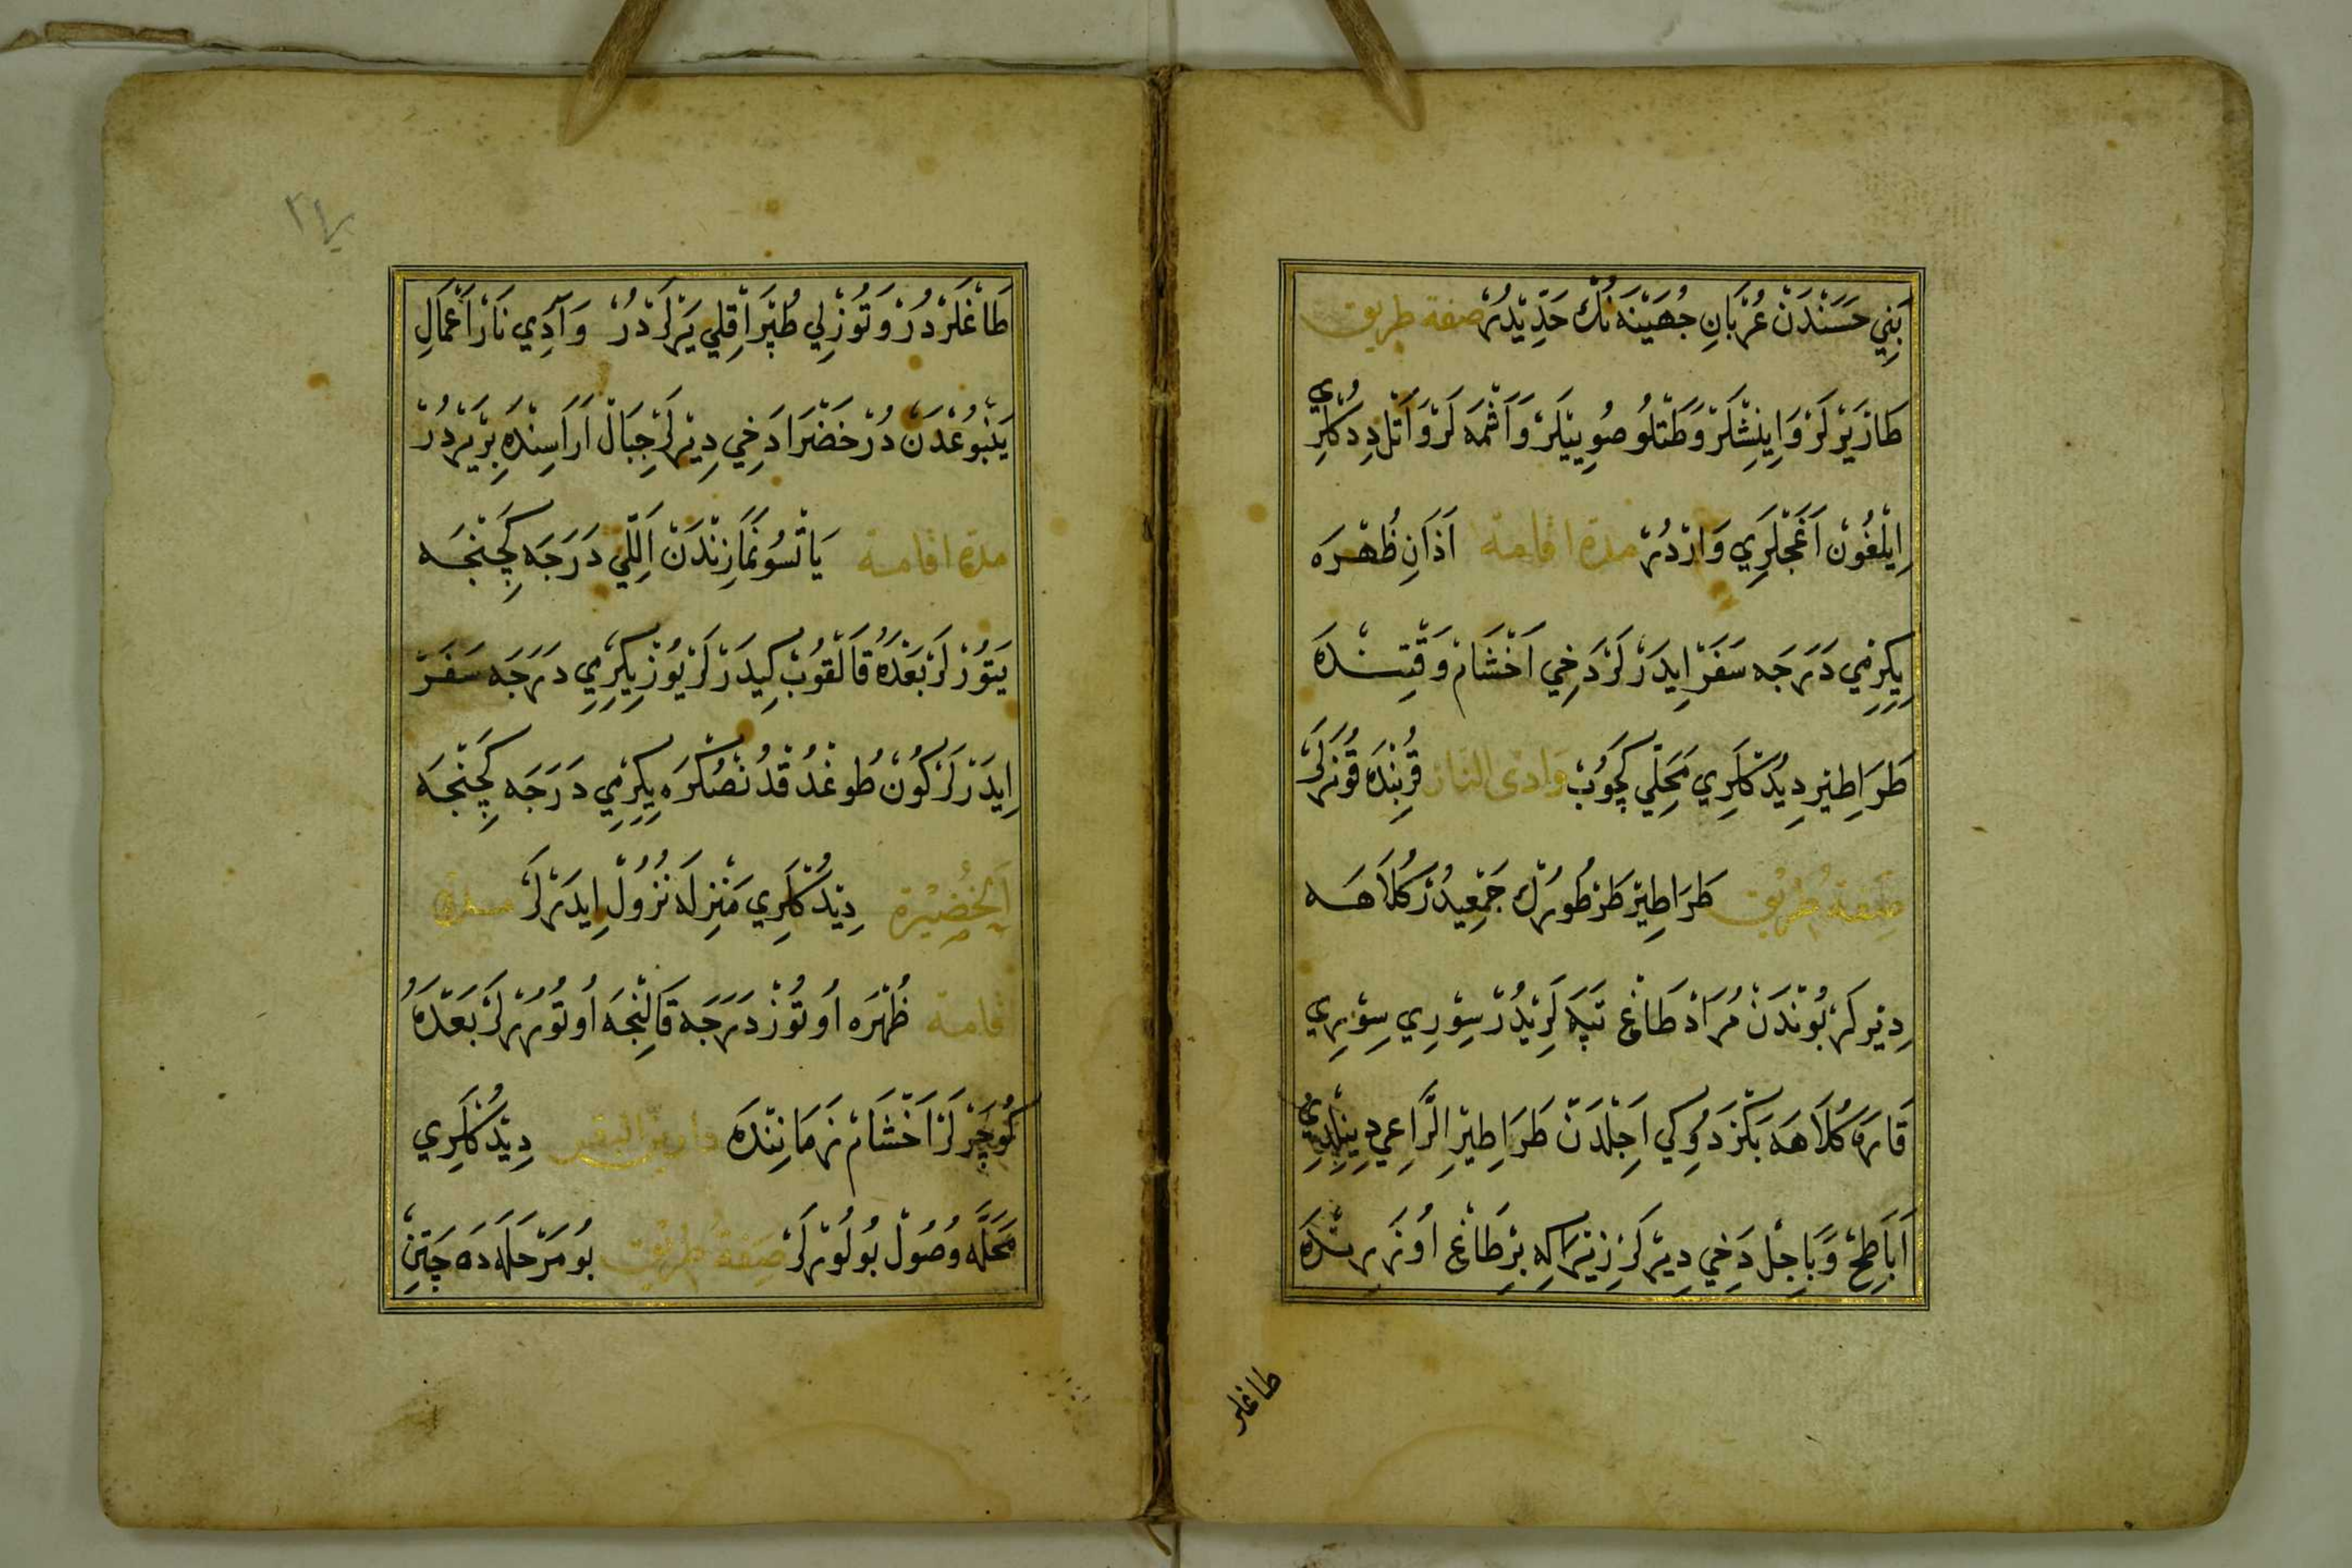 بَنِي حَسَنْدَنْ عُرْبَانِ جُهَيْنَه نُكْ حَدِّيْدُرْ صفة طريق
طَازْيَرْلَرْ وَاِينِشْلَرْ وَطَتْلُو صُوييَلَرْ وَاَشْمَه لَرْ وَاَتَلْ دِدُكْلَرِي
اِيلْغُونْ اَغَجْلَرِي وَارْدُرْ مدة اقامة اَذَانِ ظُهْرَه
يِكِرْمِي دَرَجَه سَفَرْ اِيدَرْلَرْ دَخِي اَخْشَامْ وَقْتِنْدَه
طَرَاطِيْرِ دِيْدُكْلَرِي مَحَلِّي كَچُوبْ وَادى النار قُرْبِنْدَه قُونَرْلَرْ
صِفَةُ طَرِيْق طَرَاطِيْرْ طَرْطُورُكْ جَمْعِيدُرْ كُلَاهَه
دِيْرلَرْ بُونْدَنْ مُرَادْ طَاغْ تَپَه لَرِيْدُرْ سِوْرِي سِوْرِي
قَارَه كُلَاهَه بَكْزَدُوكِي اَجِلْدَنْ طَرَاطِيْرِ الرَّاعِي دِينِلْدِي
اَبَاطِحْ وَبَاجِلْ دَخِي دِيْرْلَرْ زِيْرَاكِه بِرْ طَاغْ اُوزَرِنْدَه
طاغلر
طَاغْلَرْدُرْ وَتُوزْلِي طُپْرَاقْلِي يَرْلَرْدُرْ وَآدِي نَارْ اَعْمَالِ
يَنْبُوعْدَنْ دُرْ خَضْرَا دَخِي دِيْرلَرْ جِبَالْ اَرَاسِنْدَه بِرْ يَرْدُرْ
مدة اقامة يَاتْسُو نَمَازِنْدَنْ اَللِّي دَرَجَه كَچِنْجَه
يَتُورْلَرْ بَعْدَهُ قَالْقُوبْ كِيدَرْلَرْ يُوزْ يِكِرْمِي دَرَجَه سَفَرْ
اِيدَرْلَرْ كُونْ طُوغْدُقْدُنْصُكْرَه يِكِرْمِي دَرَجَه كَچِنْجَه
اَلْخُضَيْرَة دِيْدُكْلَرِي مَنْزِلَه نُزُولْ اِيدَرْلَرْ مدة ا
قامة ظُهْرَه اُوتُوزْ دَرَجَه قَالِنْجَه اُوتُورُرْلَرْ بَعْدَهُ
كُوچَرْلَرْ اَخْشَامْ زَمَانِنْدَه دار البقر دِيْدُكْلَرِي
مَحَلَّه وُصُولْ بُولُورْلَرْ صِفَةُ طَرِيْق بُو مَرْحَلَه دَه چَتِينْ